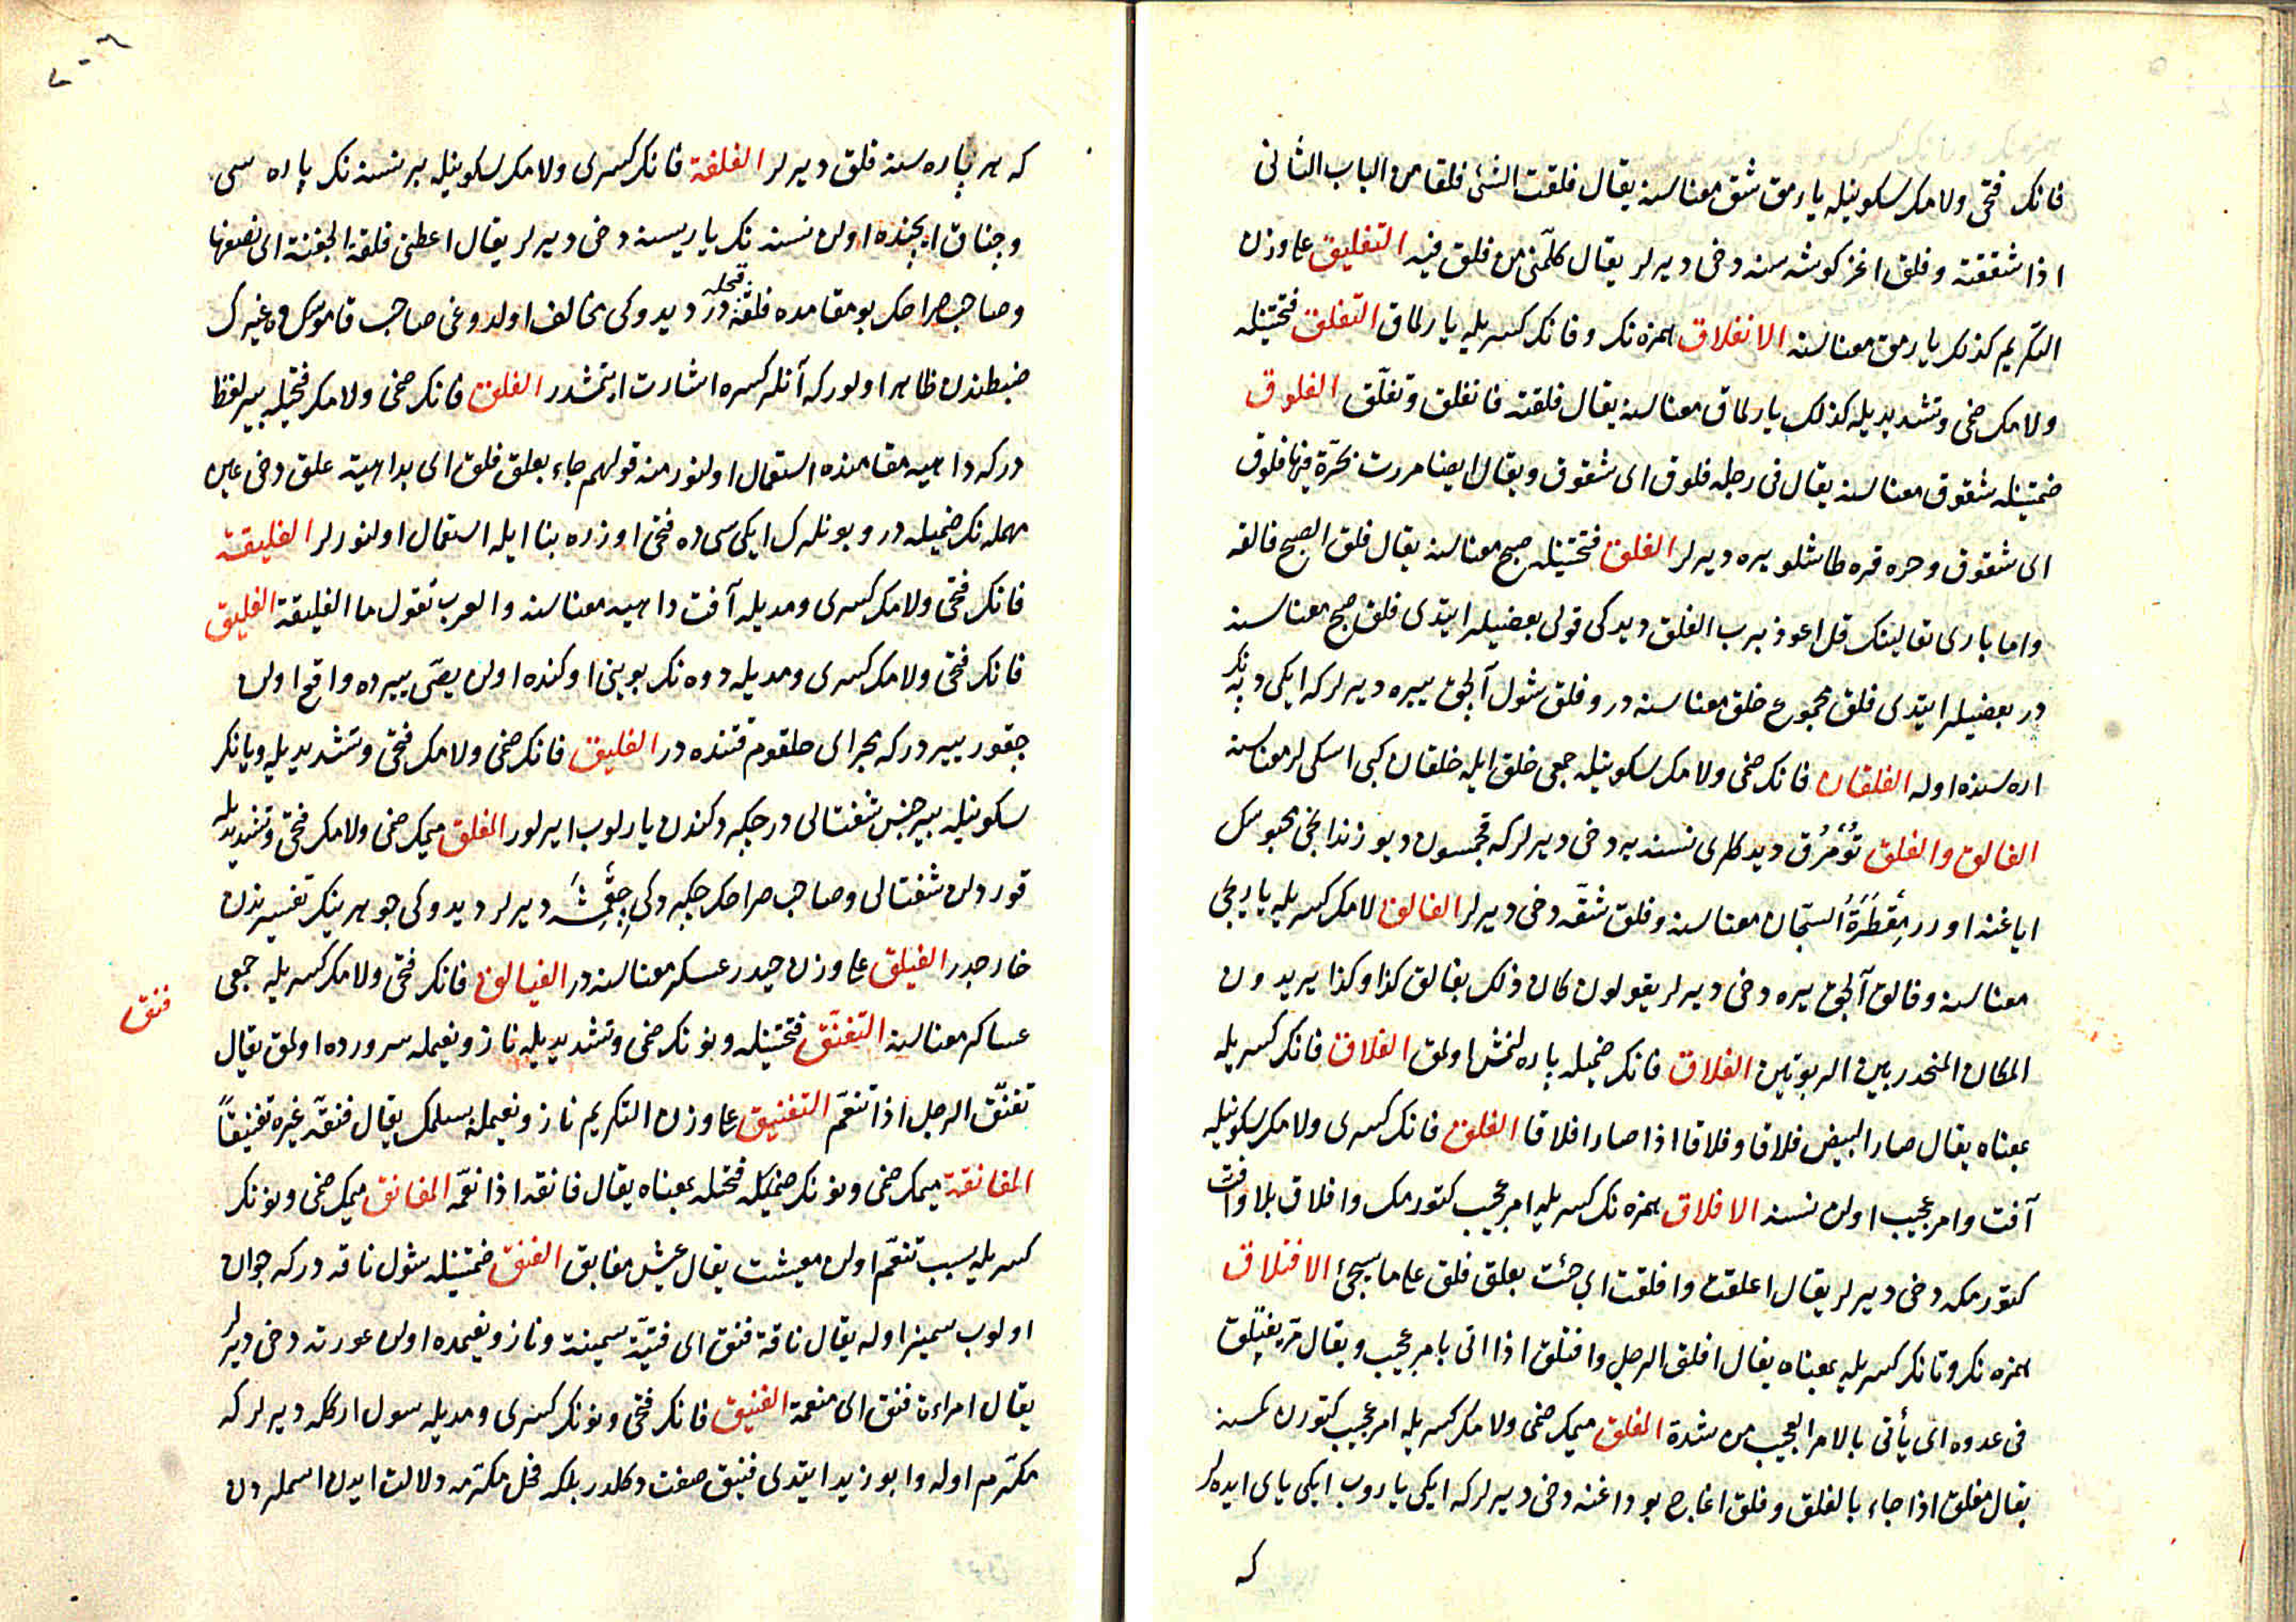 فانك فتحی ولامك سكونیله یارمق شق معناسنه یقال فلقت الشئ فلقا من الباب الثانی
اذا شققته و فلق اغز كوشه سنه دخی دیرلر یقال كلّمنی من فلق فیه التفلیق علی وزن
التكریم كذلك یارمق معناسنه الانفلاق همزه نك و فانك كسریله یارلماق التفلق فتحتینله
ولامك ضمی و تشدیدیله كذلك یارلماق معناسنه یقال فلقته فانفلق وتفلّق الفلوق
ضمتینله شقوق معناسنه یقال فی رجله فلوق ای شقوق و یقال ایضا مررت بحرّة فیها فلوق
ای شقوق و حره قره طاشلو یره دیرلر الفلق فتحتینله صبح معناسنه یقال فلق الصبح فالقه
واما باری تعالینك قل اعوذ برب الفلق دیدكی قولی بعضیلر ایتدی فلق صبح معناسنه
در بعضیلر ایتدی فلق مجموع خلق معناسنه در و فلق شول آلچق ییره دیرلر كه ایكی دپه نك
اره سنده اوله الفلقان فانك ضمی ولامك سكونیله جمعی خلق ایله خلقان كبی اسكی لر معناسنه
الفالق والفلق تُؤمْرُق دیدكلری نسنه یه دخی دیرلر كه مجسون دیو زندانجی محبوسك
ایاغنه اورر مِقْطَرَةُ السجّان معناسنه و فلق شقّه دخی دیرلر الفالق لامك كسریله یاریجی
معناسنه و فالق آلچق ییره دخی دیرلر یقولون كان ذلك بفالق كذا وكذا یریدون
المكان المنحدر بین الربوتین الفلاق فانك ضمیله پاره لنمش اولمق الفلاق فانك كسریله
بمعناه یقال صار البیض فلاقا و فلاقا اذا صار افلاقا الفلق فانك كسری ولامك سكونیله
آفت وامر عجیب اولن نسنه الافلاق همزه نك كسریله امر عجیب كتورمك وافلاق بلا وآفت
كتورمكه دخی دیرلر یقال اعلقت وافلقت ای جئت بعلق فلق علی ما سیجئ الافتلاق
همزه نك و تانك كسریله بمعناه یقال افلق الرجل وافتلق اذا اتی بامر عجیب و یقال مرّ یفتلق
فی عدوه ای یأتی بالامر العجیب من شدة المفلق میمك ضمی ولامك كسریله امر عجیب كتورن كمسنه
یقال مفلق اذا جاء بالفلق و فلق اغاج بوداغنه دخی دیرلر كه ایكی یاروب ایكی یای ایدرلر
كه
كه هر پاره سنه فلق دیرلر الفلقة فانك كسری ولامك سكونیله بر نسنه نك پاره سی
و چناق ایچنده اولن نسنه نك یاریسنه دخی دیرلر یقال اعطنی فلقة الجفنة ای نصفها
و صاحب صراحك بو مقامده فلقه فتحله در دیدوكی مخالف اولدوغی صاحب قاموسك وغیرك
ضبطندن ظاهر اولور كه آنلر كسره اشارت ایتمشدر الفلق فانك ضمی ولامك فتحیله بیر لفظ
در كه داهیه مقامنده استعمال اولنور منه قولهم جاء بعلق فلق ای بداهیة علق دخی عین
مهمله نك ضمیله در و بونلرك ایكی سی ده فتح اوزره بنا ایله استعمال اولنورلر الفلیقة
فانك فتحی ولامك كسری ومدیله آفت داهیه معناسنه والعرب تقول ما الفلیقة الفلیق
فانك فتحی ولامك كسری ومدیله دوه نك بوینی اوكنده اولن یصّی ییرده واقع اولن
چقور ییردر كه مجرای حلقوم قتنده در الفلیق فانك ضمی ولامك فتحی و تشدیدیله و یانك
سكونیله بیر جنس شفتالی در چكردكندن یارلوب ایرلور المفلق میمك ضمی ولامك فتحی و تشدیدیله
قوردلن شفتالی و صاحب صراحك چكردكی دیرلر دیدوكی جوهرینك تفسیرندن
خارجدر الفیلق علی وزن حیدر عسكر معناسنه در الفیالق فانك فتحی ولامك كسریله جمعی
فنق
عساكر معناسنه التفنّق فتحتینله و نونك ضمی و تشدیدیله ناز و نعیمله پرورده اولمق یقال
تفنّق الرجل اذا تنعّم التفنیق علی وزن التكریم ناز و نعیمله بسلمك یقال فنّقه غیره تفنیقاً
المفانقة میمك ضمی و نونك فتحله بمعناه یقال فانقه اذا نعّمه المفانق میمك ضمی و نونك
كسریله سبب تنعّم اولن معیشت یقال عیش مفانق الفنق ضمتینله شول ناقه در كه جوان
اولوب سمیز اوله یقال ناقة فنق ای فتیّة سمینة و ناز و نعیمده اولن عورته دخی دیرلر
یقال امراءة فنق ای منعمة الفنیق فانك فتحی و نونك كسری ومدیله شول اركله دیرلر كه
مكرّم اوله وابو زید ایتدی فنیق صفت دكلدر بلكه فحل مكرّمه دلالت ایدن اسملردن